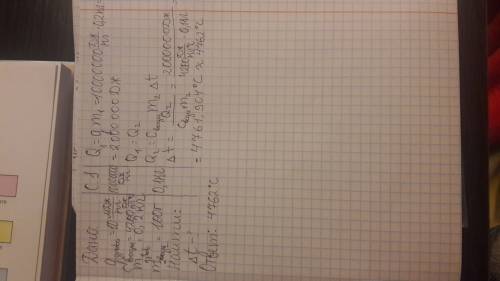 Дано
qдрова = 10 МДж/кг
cводы = 4200 Дж/кг°C
m1 = 0,2 кг
mводы = 100г
Найти:
Δt - ?
СИ
10000000 Дж/кг
0,1 кг
Q1 = q m1 = 10000000 Дж/кг · 0,2 кг =
= 2000000 Дж
Q1 = Q2
Q2 = cводы m2 Δt
Δt = Q2 / cводы m2 = 2000000 Дж / 4200 Дж/кг°C · 0,1 кг
= 4761,904°C ≈ 4762°C
Ответ: 4762°C